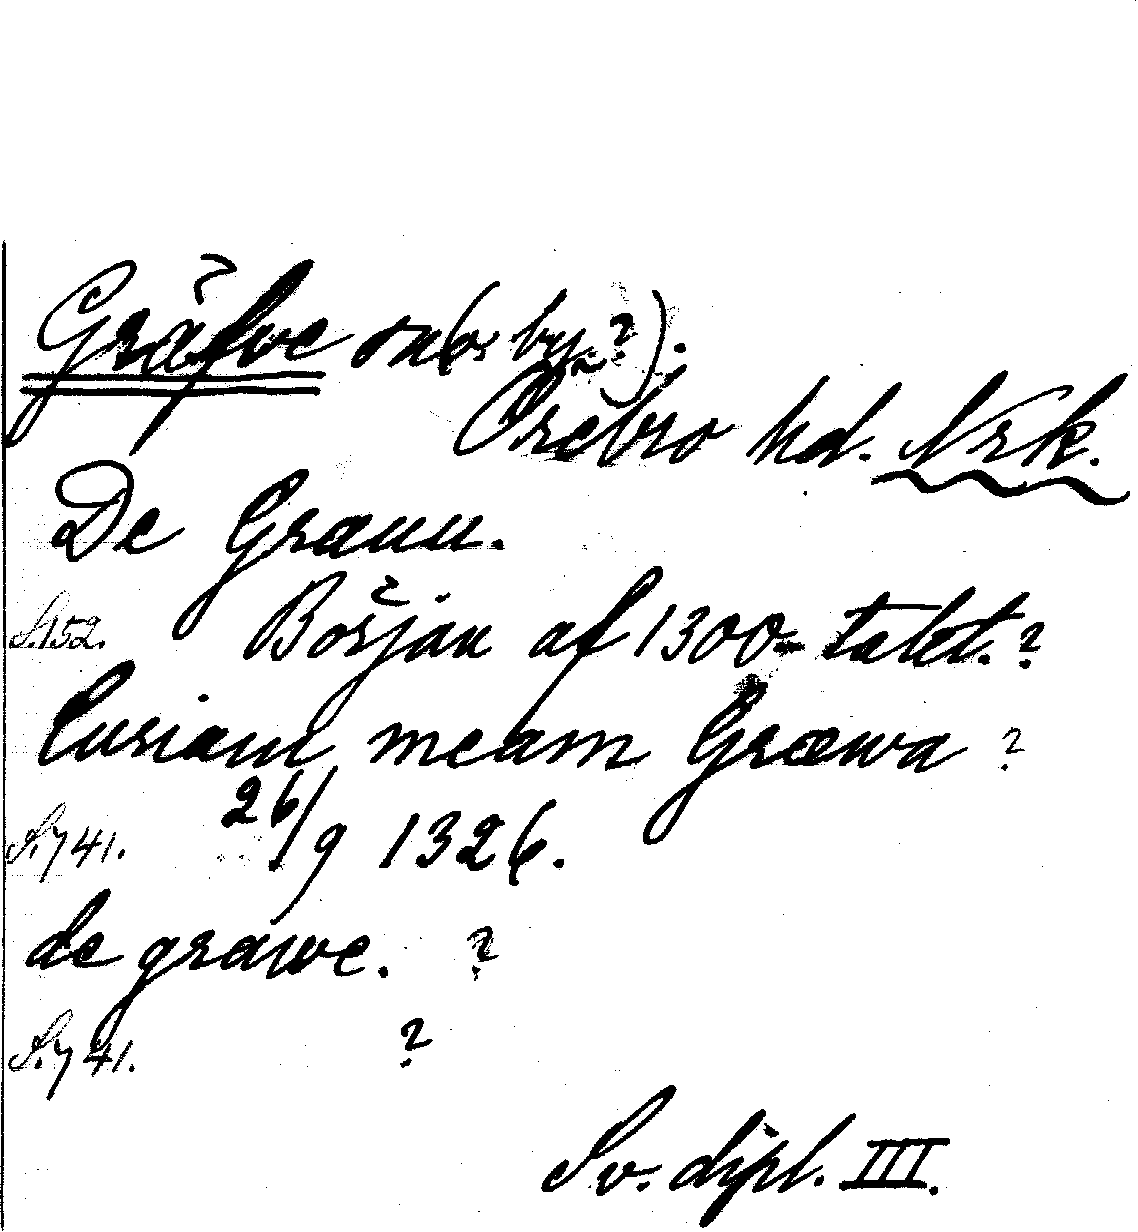 Gräfve sn (o. by?).
Örebro hd. Nrk.
De Græuu.
S. 152. Början af 1300-talet.?
Curiam meam Græwa ?
S. 741. 26/9 1326.
de grawe. ?
S. 741. ?
Sv. dipl. III.